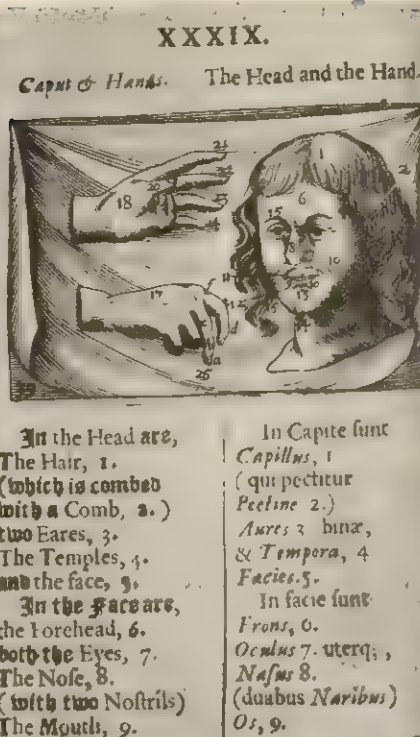 XXXIX.
Caput & Hands. The Head and the Hand.
1
2
6
15
8
10
13
18
20
21
17
26
In the Head are,
The Hair, 1.
(which is combed
with a Comb, 2.)
two Eares, 3.
The Temples, 4.
and the face, 5.
In the Face are,
the Forehead, 6.
both the Eyes, 7.
The Noſe, 8.
(with two Noſtrils)
The Mouth, 9.
In Capite ſunt
Capillus, 1
(qui pectitur
Pectine 2.)
Aures 3 binæ,
& Tempora, 4
Facies. 5.
In facie ſunt
Frons, 6.
Oculus 7. uterq;,
Naſus 8.
(duabus Naribus)
Os, 9.